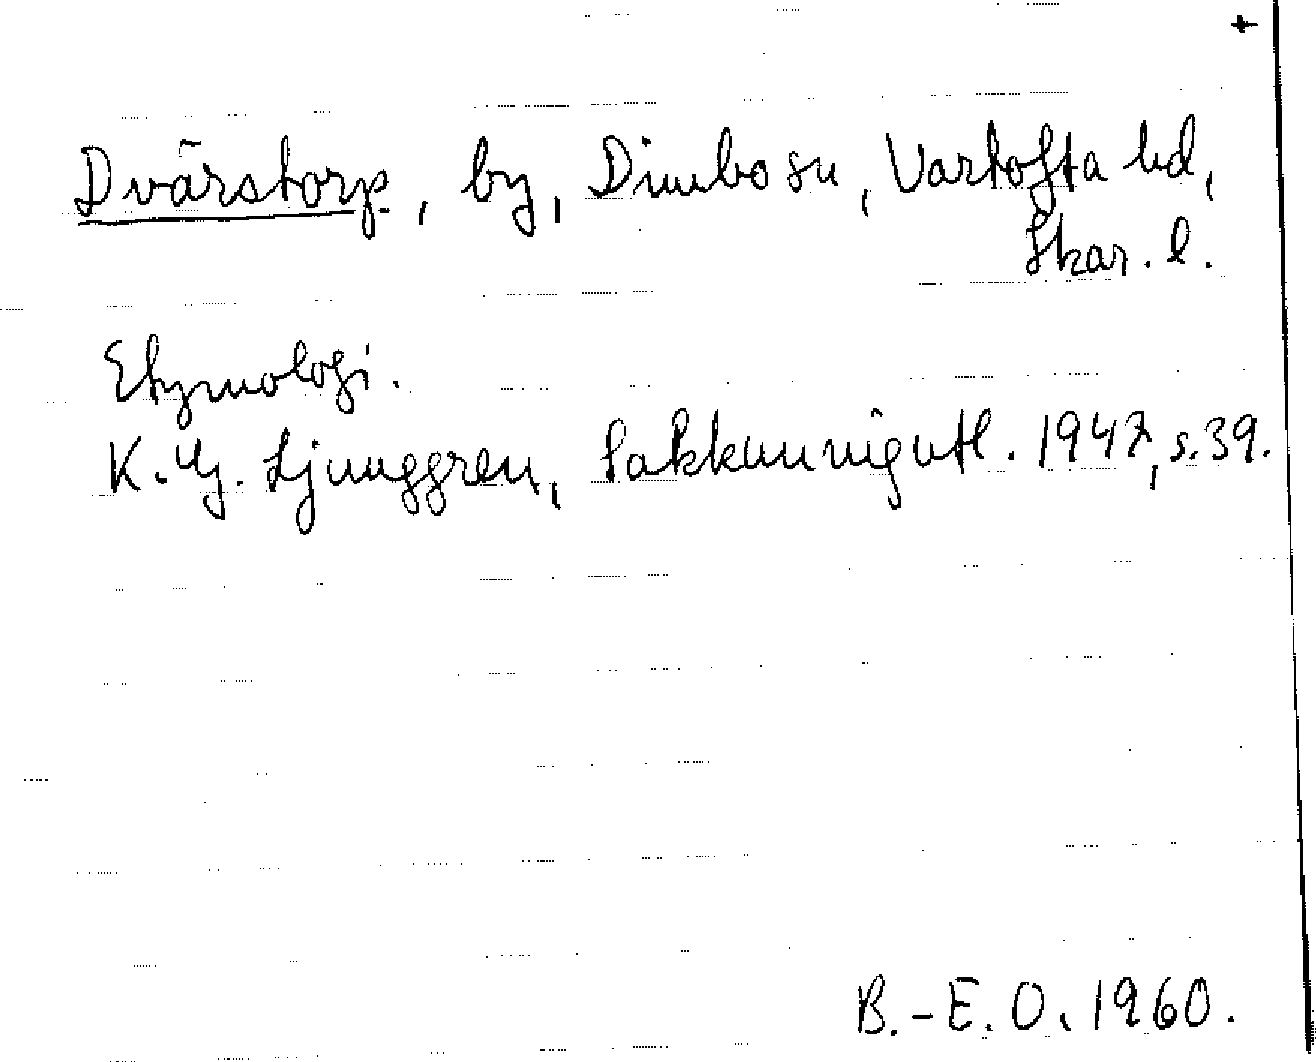 +
Dvärstorp, by, Dimbo sn, Vartofta hd,
Skar. l.
Etymologi.
K. G. Ljunggren, Sakkunnigutl. 1947, s. 39.
B.-E. O. 1960.